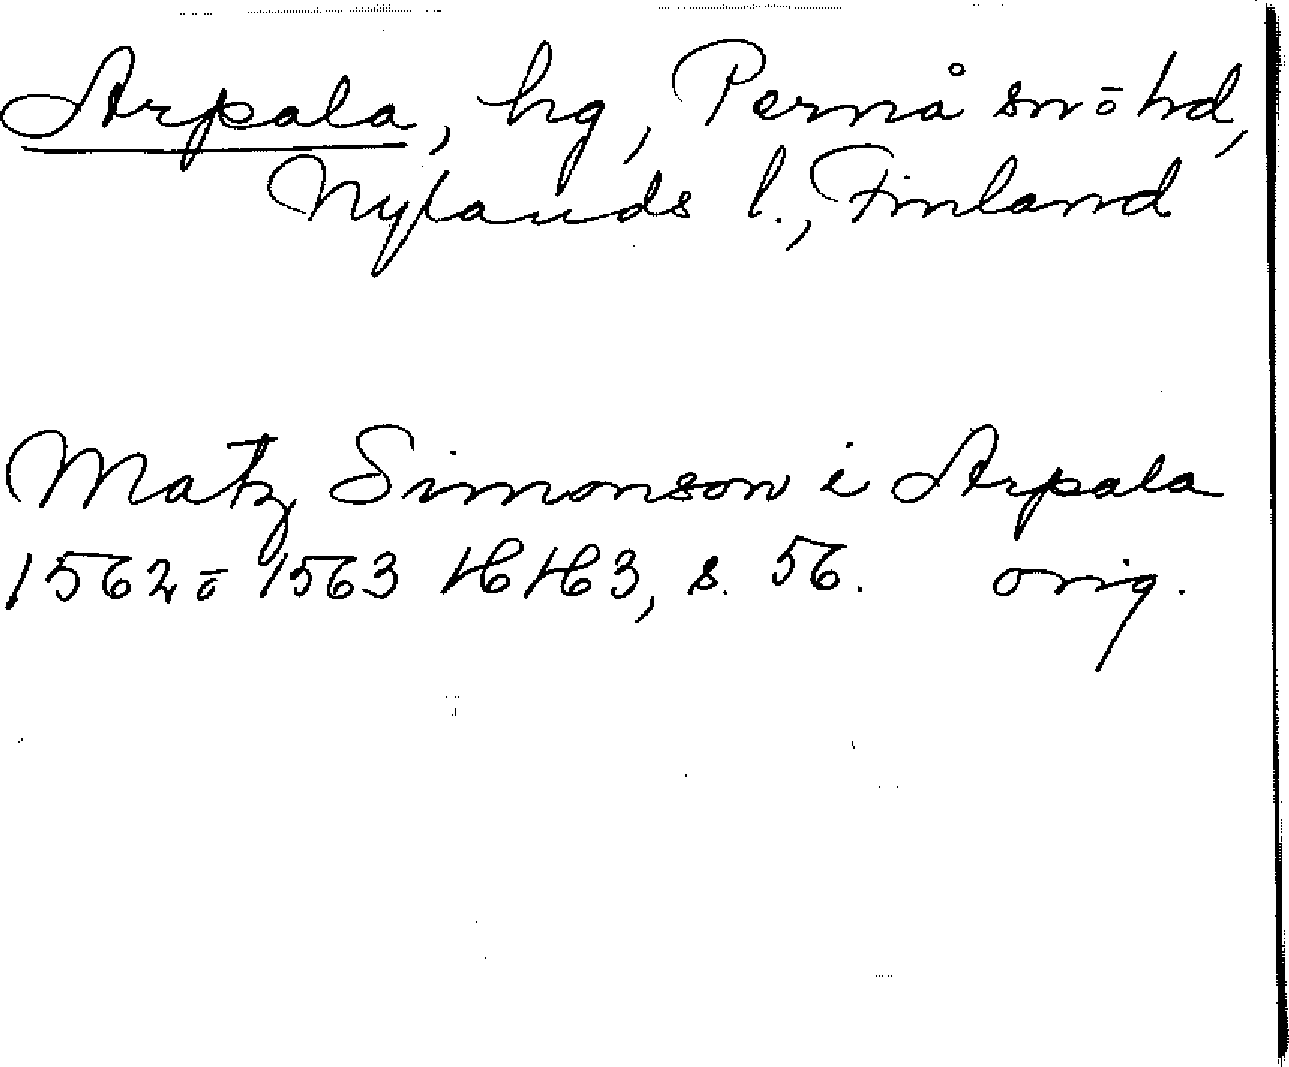 Arpala, hg, Pernå sn ō hd,
Nylands l., Finland
Matz Simonson i Arpala
1562 ō 1563 HH3, s. 56. orig.